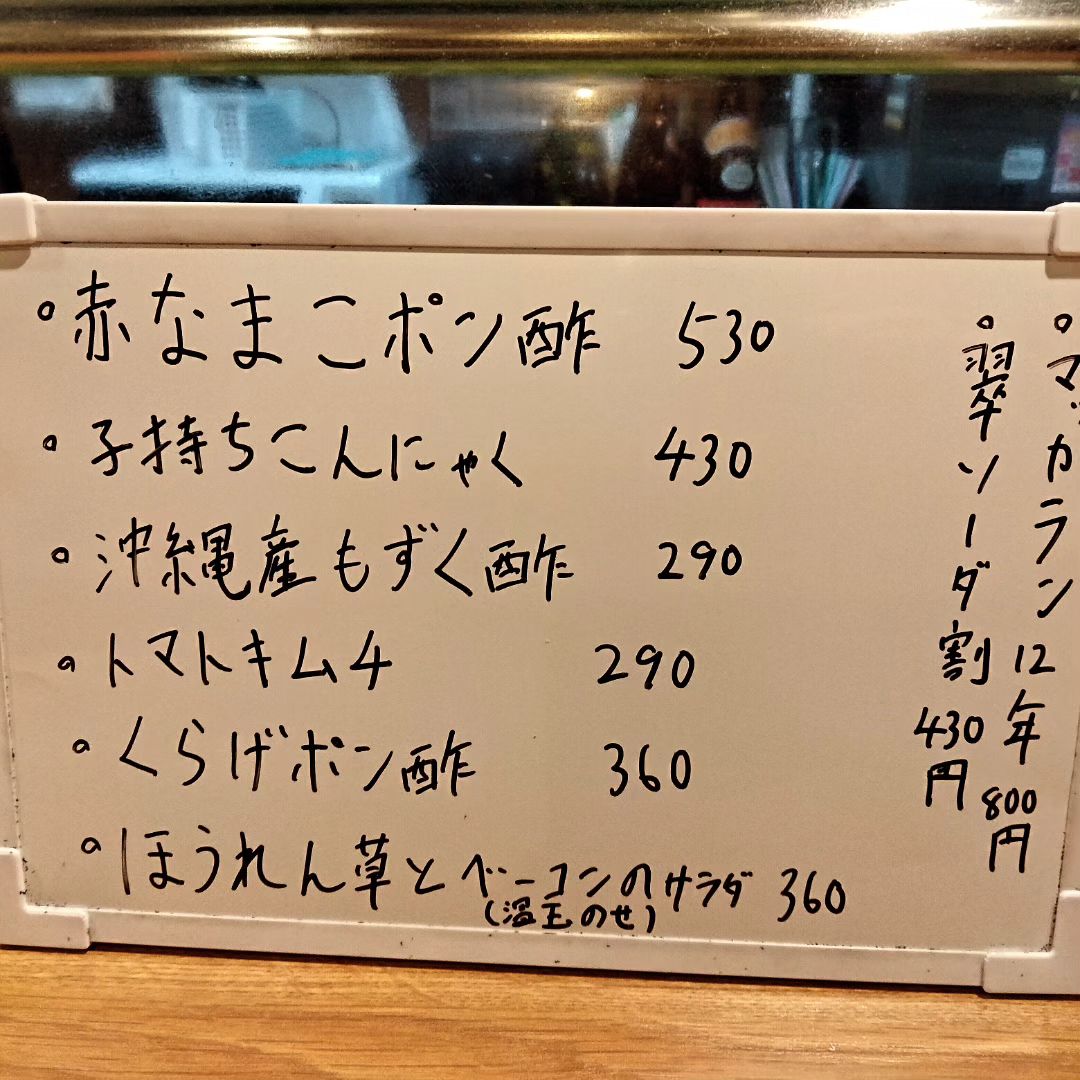 赤なまこポン酢 530
子持ちこんにゃく 430
沖縄産もずく酢 290
トマトキムチ 290
くらげポン酢 360
ほうれん草とベーコンのサラダ 360
(温玉のせ)
マッカラン12年 800円
翠ソーダ割 430円